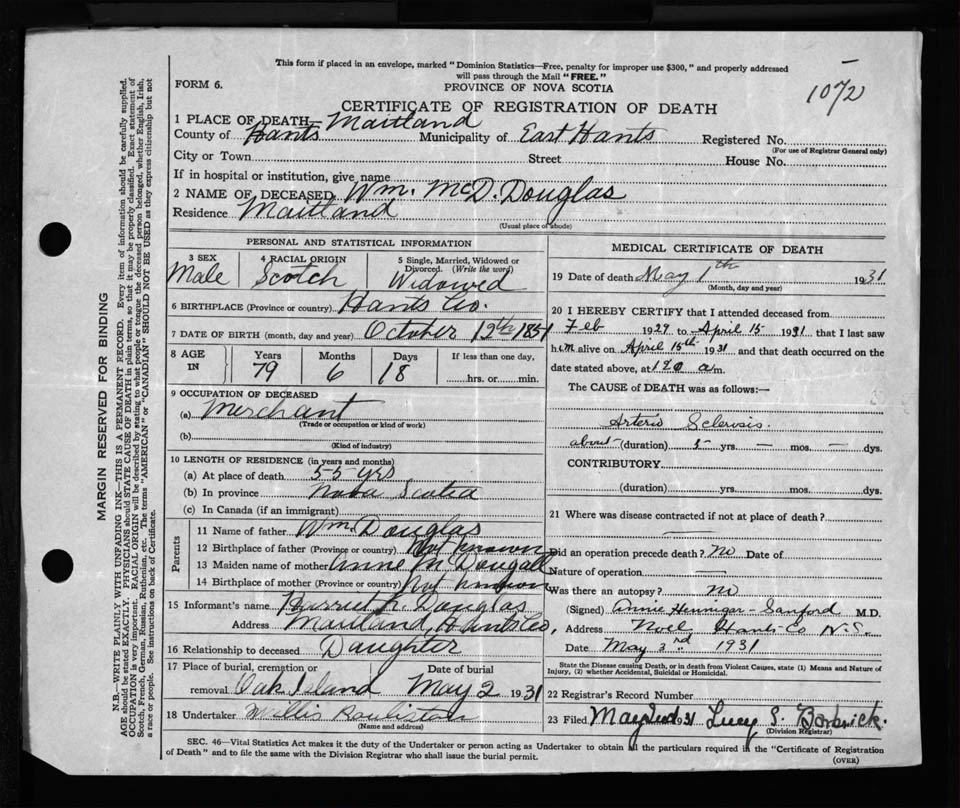 This form if placed in an envelope, marked "Dominion Statistics—Free, penalty for improper use $300," and properly addressed
will pass through the Mail "FREE."
FORM 6.
PROVINCE OF NOVA SCOTIA
1072
CERTIFICATE OF REGISTRATION OF DEATH
1 PLACE OF DEATH, Maitland
County of Hants Municipality of East Hants Registered No.
(For use of Registrar General only)
City or Town Street House No.
If in hospital or institution, give name
2 NAME OF DECEASED Wm. McD. Douglas
Residence Maitland
(Usual place of abode)
PERSONAL AND STATISTICAL INFORMATION
3 SEX 4 RACIAL ORIGIN 5 Single, Married, Widowed or Divorced. (Write the word)
Male Scotch Widowed
6 BIRTHPLACE (Province or country) Hants Co.
7 DATE OF BIRTH (month, day and year) October 12th 1851
8 AGE IN Years Months Days If less than one day,
79 6 18 hrs. or min.
9 OCCUPATION OF DECEASED
(a) Merchant
(Trade or occupation or kind of work)
(b)
(Kind of industry)
10 LENGTH OF RESIDENCE (in years and months)
(a) At place of death 55 yrs
(b) In province Nova Scotia
(c) In Canada (if an immigrant)
Parents
11 Name of father Wm. Douglas
12 Birthplace of father (Province or country) Not known
13 Maiden name of mother Anne McDougall
14 Birthplace of mother (Province or country) Not known
15 Informant's name Harriet Douglas
Address Maitland, Hants Co,
16 Relationship to deceased Daughter
17 Place of burial, cremation or removal Date of burial
Oak Island May 2 1931
18 Undertaker Willis
(Name and address)
MEDICAL CERTIFICATE OF DEATH
19 Date of death May 1th 1931
(Month, day and year)
20 I HEREBY CERTIFY that I attended deceased from
Feb 1929 to April 15 1931, that I last saw
him alive on April 15th 1931 and that death occurred on the
date stated above, at a/m.
The CAUSE of DEATH was as follows:—
Arterio Sclerosis.
about (duration) 5 yrs. — mos. — dys.
CONTRIBUTORY
(duration) yrs. mos. dys.
21 Where was disease contracted if not at place of death?
Did an operation precede death? no Date of
Nature of operation —
Was there an autopsy? no
(Signed) Annie Hennigar-Sanford M.D.
Address Noel Hants Co N.S.
Date May 2nd 1931
State the Disease causing Death, or in death from Violent Causes, state (1) Means and Nature of
Injury, (2) whether Accidental, Suicidal or Homicidal.
22 Registrar's Record Number
23 Filed May 2nd 1931 Lucy S. Barbrick.
(Division Registrar)
SEC. 46—Vital Statistics Act makes it the duty of the Undertaker or person acting as Undertaker to obtain all the particulars required in the "Certificate of Registration
of Death" and to file the same with the Division Registrar who shall issue the burial permit.
(OVER)
MARGIN RESERVED FOR BINDING
N.B.—WRITE PLAINLY WITH UNFADING INK—THIS IS A PERMANENT RECORD. Every item of information should be carefully supplied.
AGE should be stated EXACTLY. PHYSICIANS should STATE CAUSE OF DEATH in plain terms, so that it may be properly classified. Exact statement of
OCCUPATION is very important. RACIAL ORIGIN will be described by stating to what people or tongue the deceased person belonged, whether English, Irish,
Scotch, French, German, Russian, Ruthenian, etc. The terms "AMERICAN" or "CANADIAN" SHOULD NOT BE USED as they express citizenship but not
a race or people. See instructions on back of Certificate.